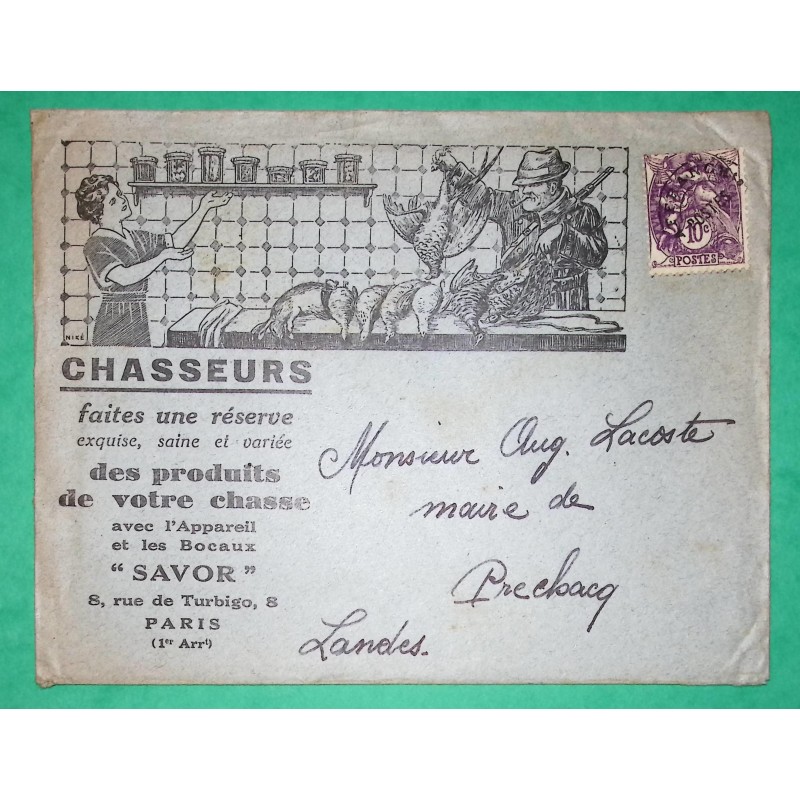 NIKÉ
CHASSEURS
faites une réserve
exquise, saine et variée
des produits
de votre chasse
avec l'Appareil
et les Bocaux
"SAVOR"
8, rue de Turbigo, 8
PARIS
(1er Arrt)
Monsieur Aug. Lacoste
maire de
Prechacq
Landes.
AFFRANCHts
POSTES
10c
POSTES